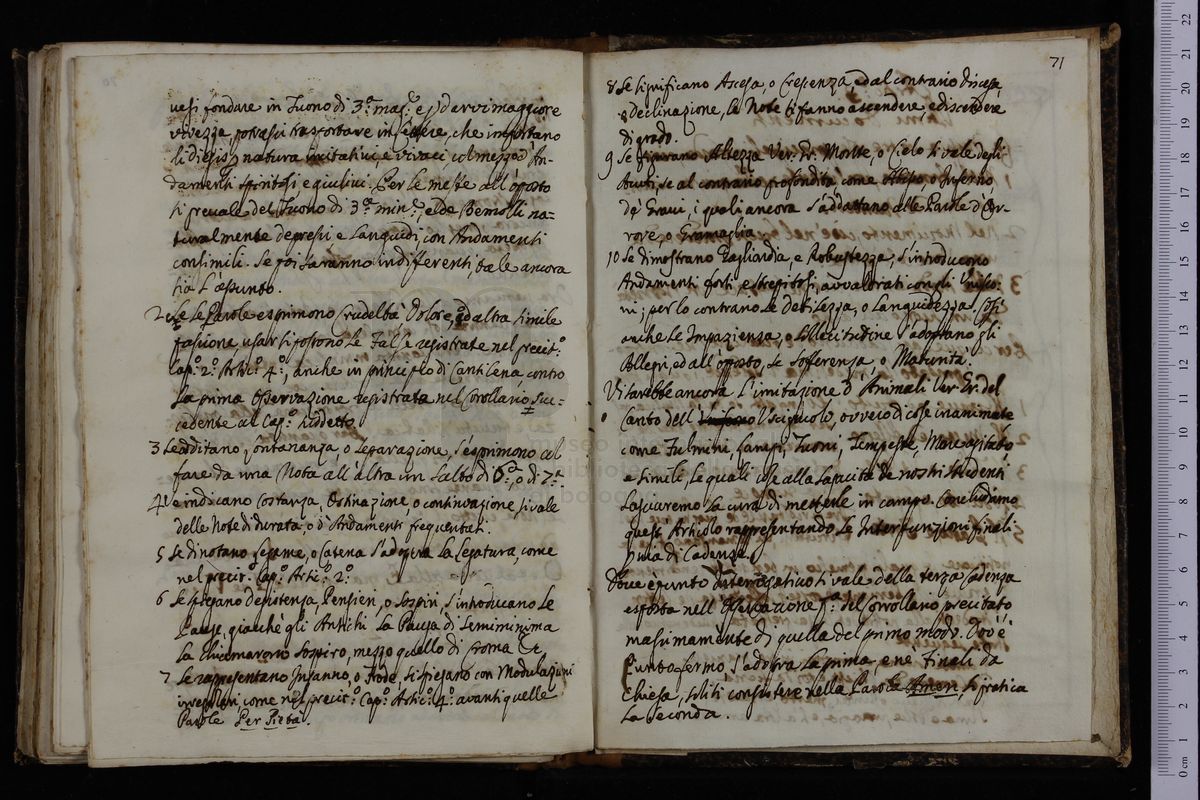 vesi fondare in Tuono di 3.ª mag.e e p darvi maggiore
vivezza, potrassi trasportare in Lettere, che importano
li Diesis p natura incitativi e vivaci col mezzo d'An-
damenti spiritosi e giulivi. Per le meste all'opposto
si prevale del Tuono di 3.ª min.e, e de Bemolli na-
turalmente depressi e Languidi, con Andamenti
consimili. Se poi saranno indifferenti tale ancora
sia l'assunto.
2 Se le Parole esprimono Crudeltà Dolore, ed altra simile
passione usar si possono le False registrate nel precit.º
Cap.º 2.º Artic.º 4.º, anche in principio di Cantilena, contro
la prima Osservazione registrata nel Corollario suc-
cedente al Cap.º suddetto.
3 Se additano Lontananza, o Separazione, s'esprimono col
fare da una Nota all'altra un Salto di 6.ª, o di 7.ª
4 Se indicano Costanza, Ostinazione, o continuazione si vale
delle Note di durata, o d'Andamenti frequentati.
5 Se dinotano Legame, o Catena s'adopra la Legatura, come
nel precit.º Cap.º Artic.º 2.º
6 Se spiegano Pensieri, o Sospiri, s'introducano le
Pause, giacchè gli Antichi la Pausa di Semiminima
la chiamarono Sospiro, mezzo quello di Croma &c
7 Se rappresentano Inganno, o Frode, si spiegano con Modulazioni
come nel precit.º Cap.º Artic.º 4.º avanti quelle
Parole Per Pietà.
71
8 Se significano Ascesa, o Crescenza, ed al contrario Discesa,
e Declinazione, le Note si fanno ascendere e discendere
di grado.
9 Se figurano Altezza Ver. Gr. Monte, o Cielo si vale degli
Acuti, se al contrario profondità come Abisso, o Inferno,
de' Gravi, i quali ancora s'addattano alle Parole d'Or-
rore, o Gramaglia.
10 Se dimostrano Gagliardia, e Robustezza, s'introducono
Andamenti forti e strepitosi, avvalorati con gli Uniso-
ni; per lo contrario le Debolezza, o Languidezza. Così
anche le Impazienza, o sollecitudine s'adoprano gli
Allegri, ed all'opposto, se sofferenza, o Maturità.
Vi sarebbe ancora l'imitazione d'Animali Ver. Gr. del
Canto dell' Usignuolo, ovvero di cose inanimate
come Fulmini, Lampi, Tuoni, Tempeste, Mare agitato
e simili, le quali cose alla capacità de nostri Studenti
lasciaremo la cura di metterle in campo. Concludiamo
quest'Articolo rappresentando le Interpunzioni finali
p via di Cadenza.
Dove è punto Interrogativo si vale della terza Cadenza
esposta nell'Osservazione p.ª del Corrollario precitato
massimamente di quella del primo modo. Dov'è
Punto fermo, s'adopra la prima, e nè Finali da
Chiesa, soliti consistere nella Parola Amen, si pratica
la Seconda.